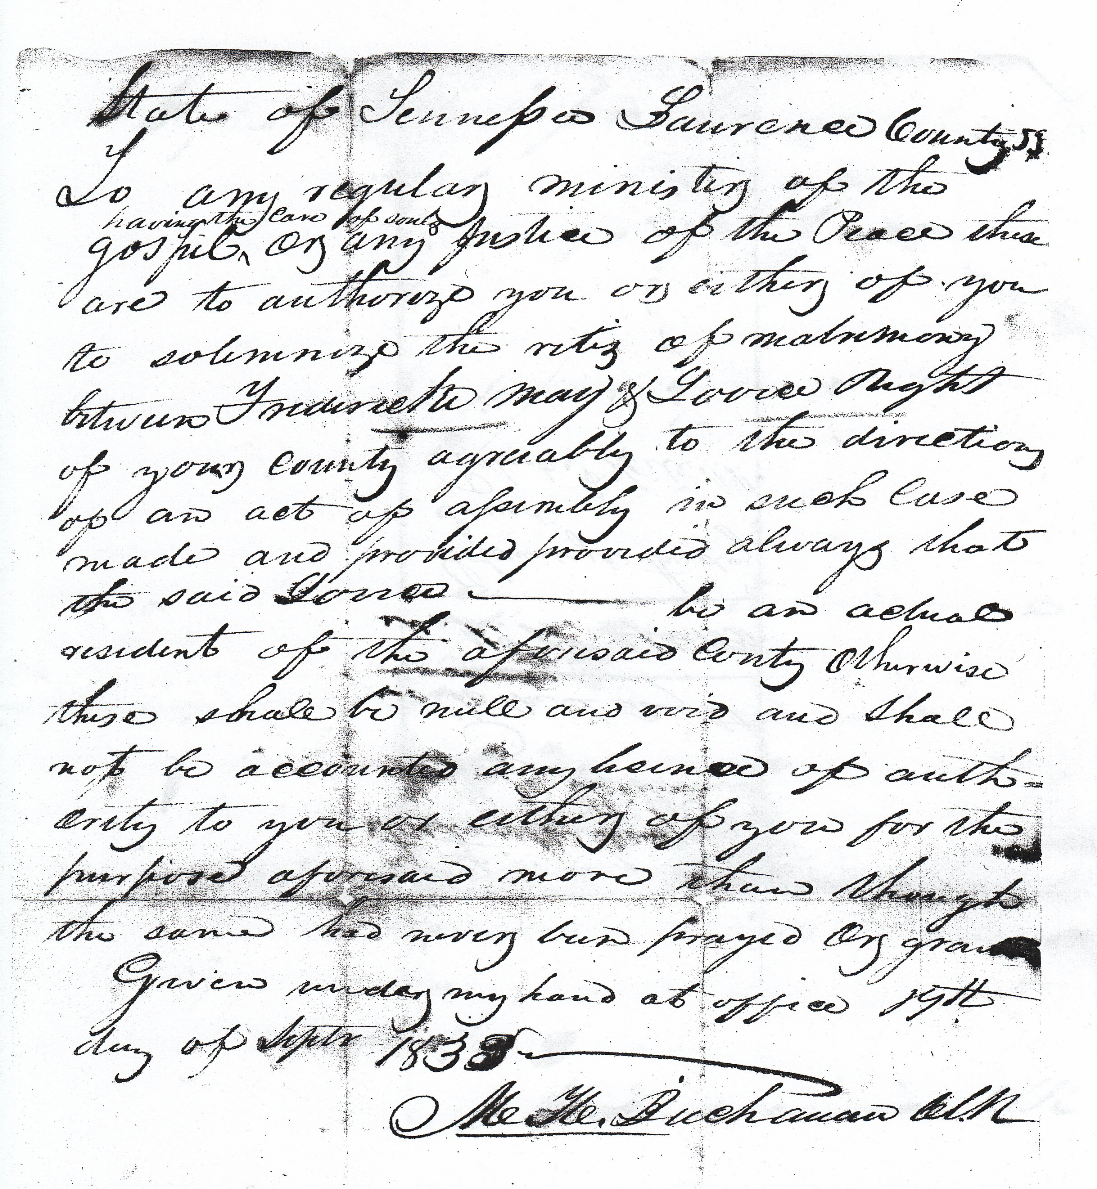 State of Tennessee Lawrence County SS
To any regular minister of the
having the care of souls
gospel, Or any Justice of the Peace these
are to authorize you or either of you
to solemnize the rites of matrimony
between Frederick May &
of your County agreeably to the directions
of an act of assembly in such Case
made and provided provided always that
the said be an actual
resident of the aforesaid County Otherwise
these shall be null and void and shall
not be accounted any lisence or auth=
ority to you or either of you for the
purpose aforesaid more than though
the same had never been prayed Or
Given under my hand at office 19th
day of Septr
M. H. Buchanan Clk